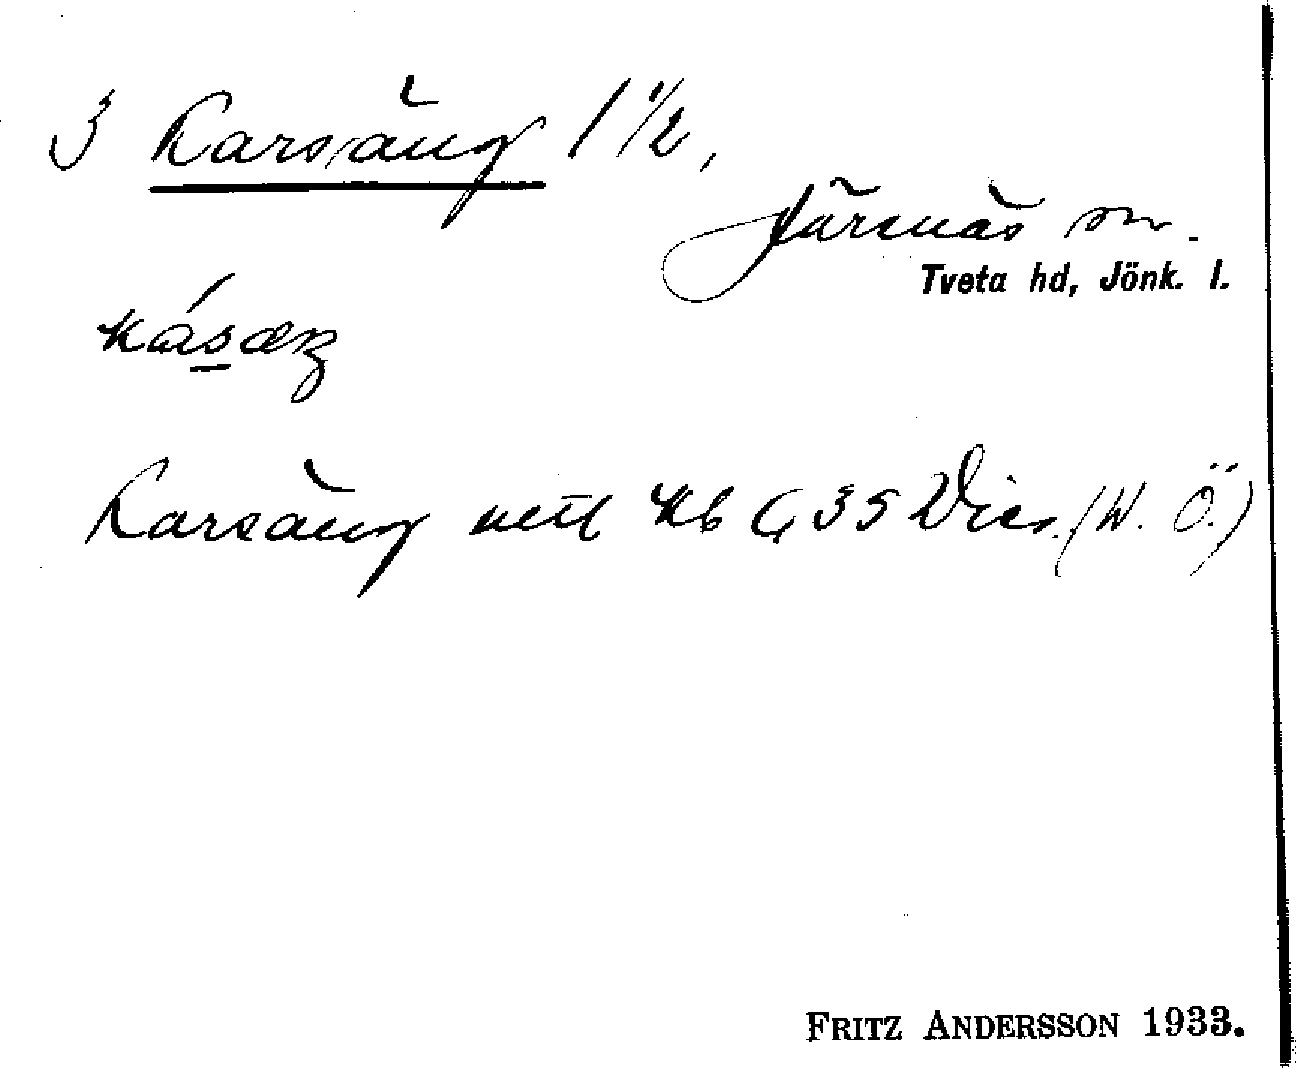 3 Karsäng 1 1/2,
Järsnäs sn.
Tveta hd, Jönk. l.
kásæŋ
Karsäng Kb C 35 (W. Ö.)
FRITZ ANDERSSON 1933.